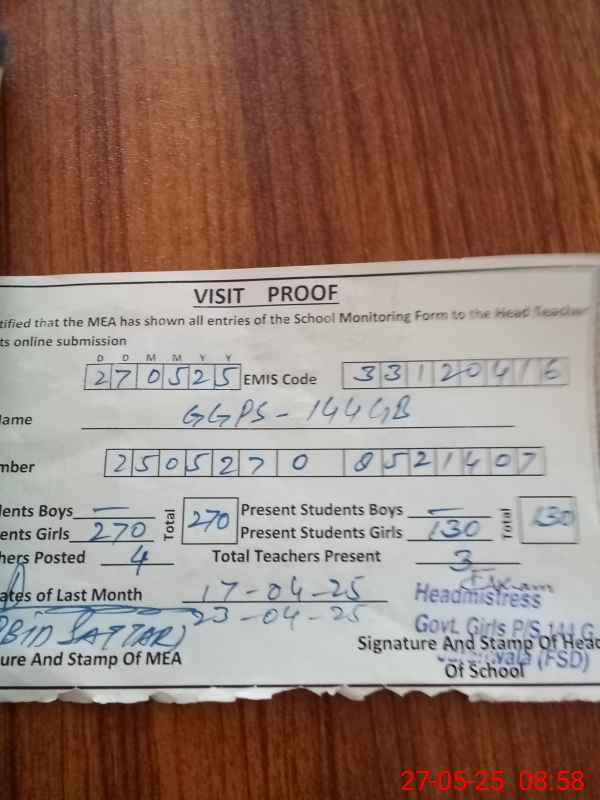 VISIT PROOF
tified that the MEA has shown all entries of the School Monitoring Form to the Head Teacher
ts online submission
D D M M Y Y
270525 EMIS Code 33120416
lame GGPS - 144GB
mber 2505270 8521407
lents Boys — Total 270 Present Students Boys — Total 130
ents Girls 270 Present Students Girls 130
hers Posted 4 Total Teachers Present 3
ates of Last Month 17-04-25
23-04-25
Headmistress
Govt. Girls P/S 144 G
(FSD)
SATTAR)
ure And Stamp Of MEA
Signature And Stamp Of Head
Of School
27-05-25 08:58